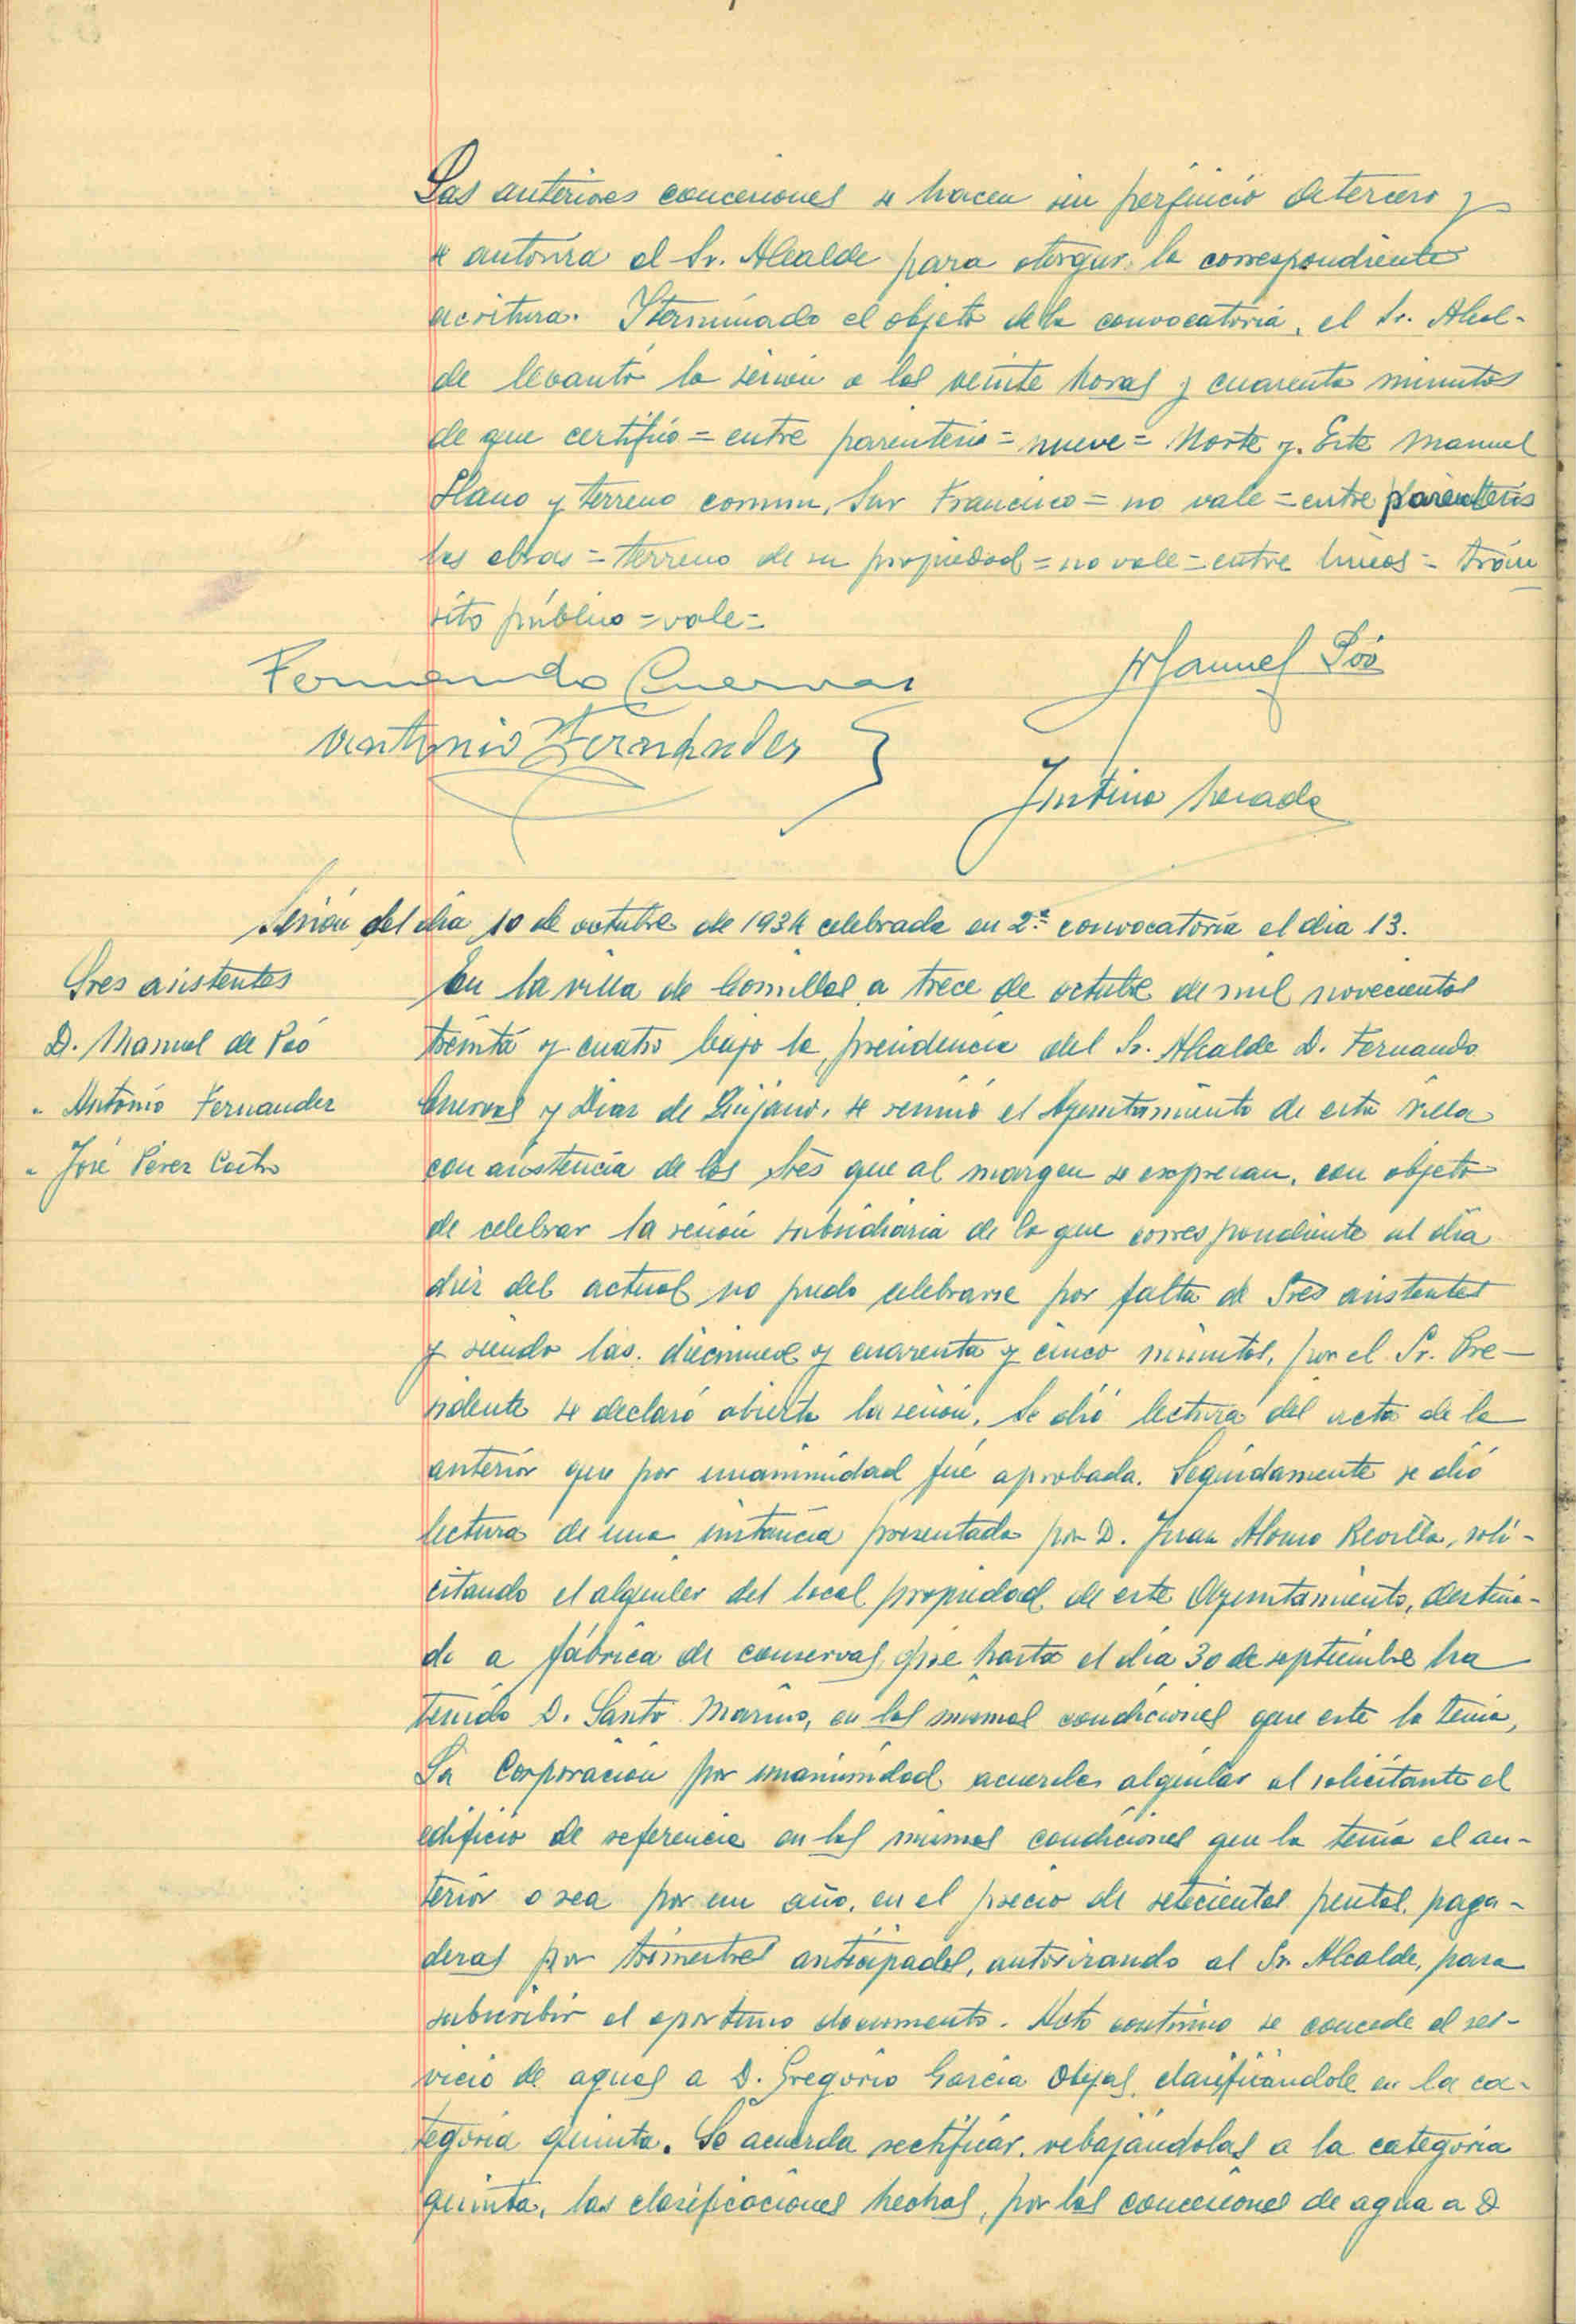 Las anteriores concesiones se hacen sin perjuicio de tercero y
se autoriza al Sr. Alcalde para otorgar la correspondiente
escritura. Y terminado el objeto de la convocatoria, el Sr. Alcal-
de levantó la sesión a las veinte horas y cuarenta minutos
de que certifico = entre parentesis = nueve = Norte y Este Manuel
Llano y terreno comun, Sur Francisco = no vale = entre parentesis
las obras = terreno de su propiedad = no vale = entre lineas = trán
sito público = vale =
Fernando Cuevas
Manuel Póo
Antonio Fernandez
Justino
Sesión del dia 10 de octubre de 1934 celebrada en 2ª convocatoria el dia 13.
Sres asistentes
D. Manuel de Poó
" Antonio Fernandez
" José Pérez Castro
En la villa de Comillas a trece de octubre de mil novecientos
treinta y cuatro bajo la presidencia del Sr. Alcalde D. Fernando
Cuevas y Diaz de Quijano, se reunió el Ayuntamiento de esta villa
con asistencia de los Sres que al margen se expresan, con objeto
de celebrar la sesión subsidiaria de la que correspondiente al dia
diez del actual no pudo celebrarse por falta de Sres asistentes
y siendo las diecinueve y cuarenta y cinco minutos, por el Sr. Pre-
sidente se declaró abierta la sesión. Se dió lectura del acta de la
anterior que por unanimidad fué aprobada. Seguidamente se dió
lectura de una instancia presentada por D. Juan Alonso Revilla, soli-
citando el alquiler del local propiedad de este Ayuntamiento, destina-
do a fábrica de conservas, que hasta el dia 30 de septiembre ha
tenido D. Santo Marino, en las mismas condiciones que este la tenia,
La Corporación por unanimidad acuerda alquilar al solicitante el
edificio de referencia en las mismas condiciones que la tenia el an-
terior o sea por un año, en el precio de setecientas pesetas, paga-
deras por trimestres anticipados, autorizando al Sr. Alcalde, para
subscribir el oportuno documento. Acto continuo se concede el ser-
vicio de aguas a D. Gregorio Garcia clasificándole en la ca-
tegoria quinta. Se acuerda rectificar, rebajándolas a la categoria
quinta, las clasificaciones hechas, por las concesiones de agua a D